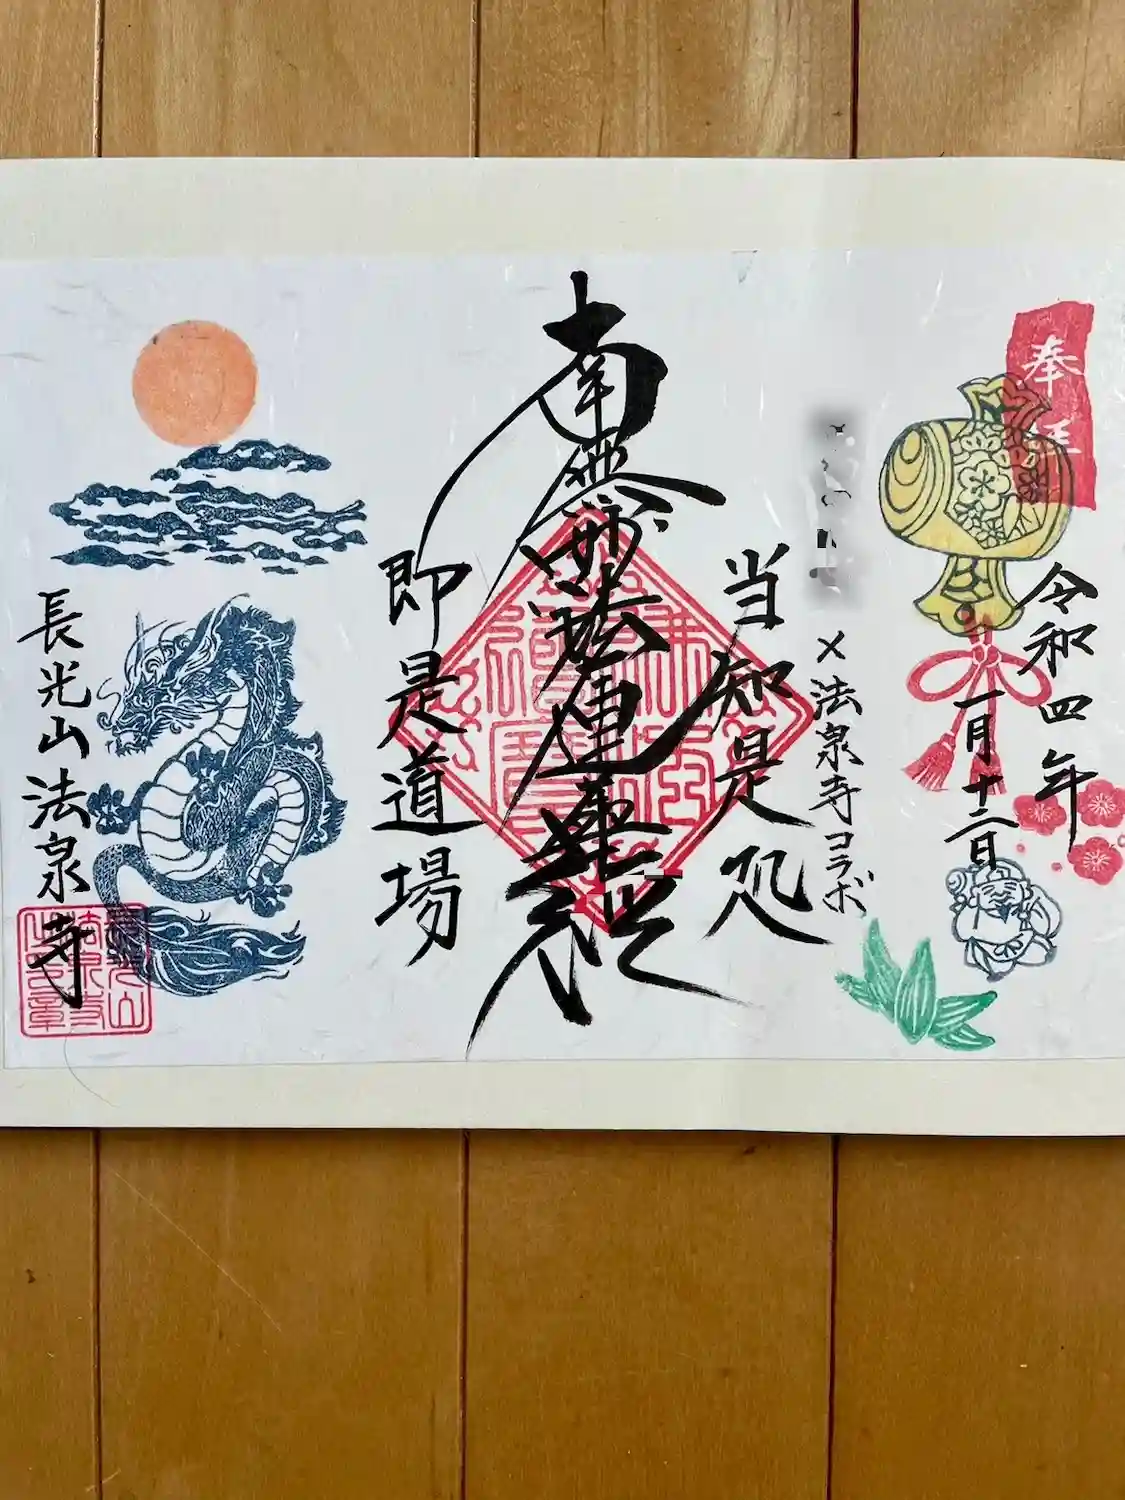 奉拝
令和四年
一月十二日
×法泉寺コラボ
当知是処
南無妙法蓮華経
即是道場
長光山法泉寺